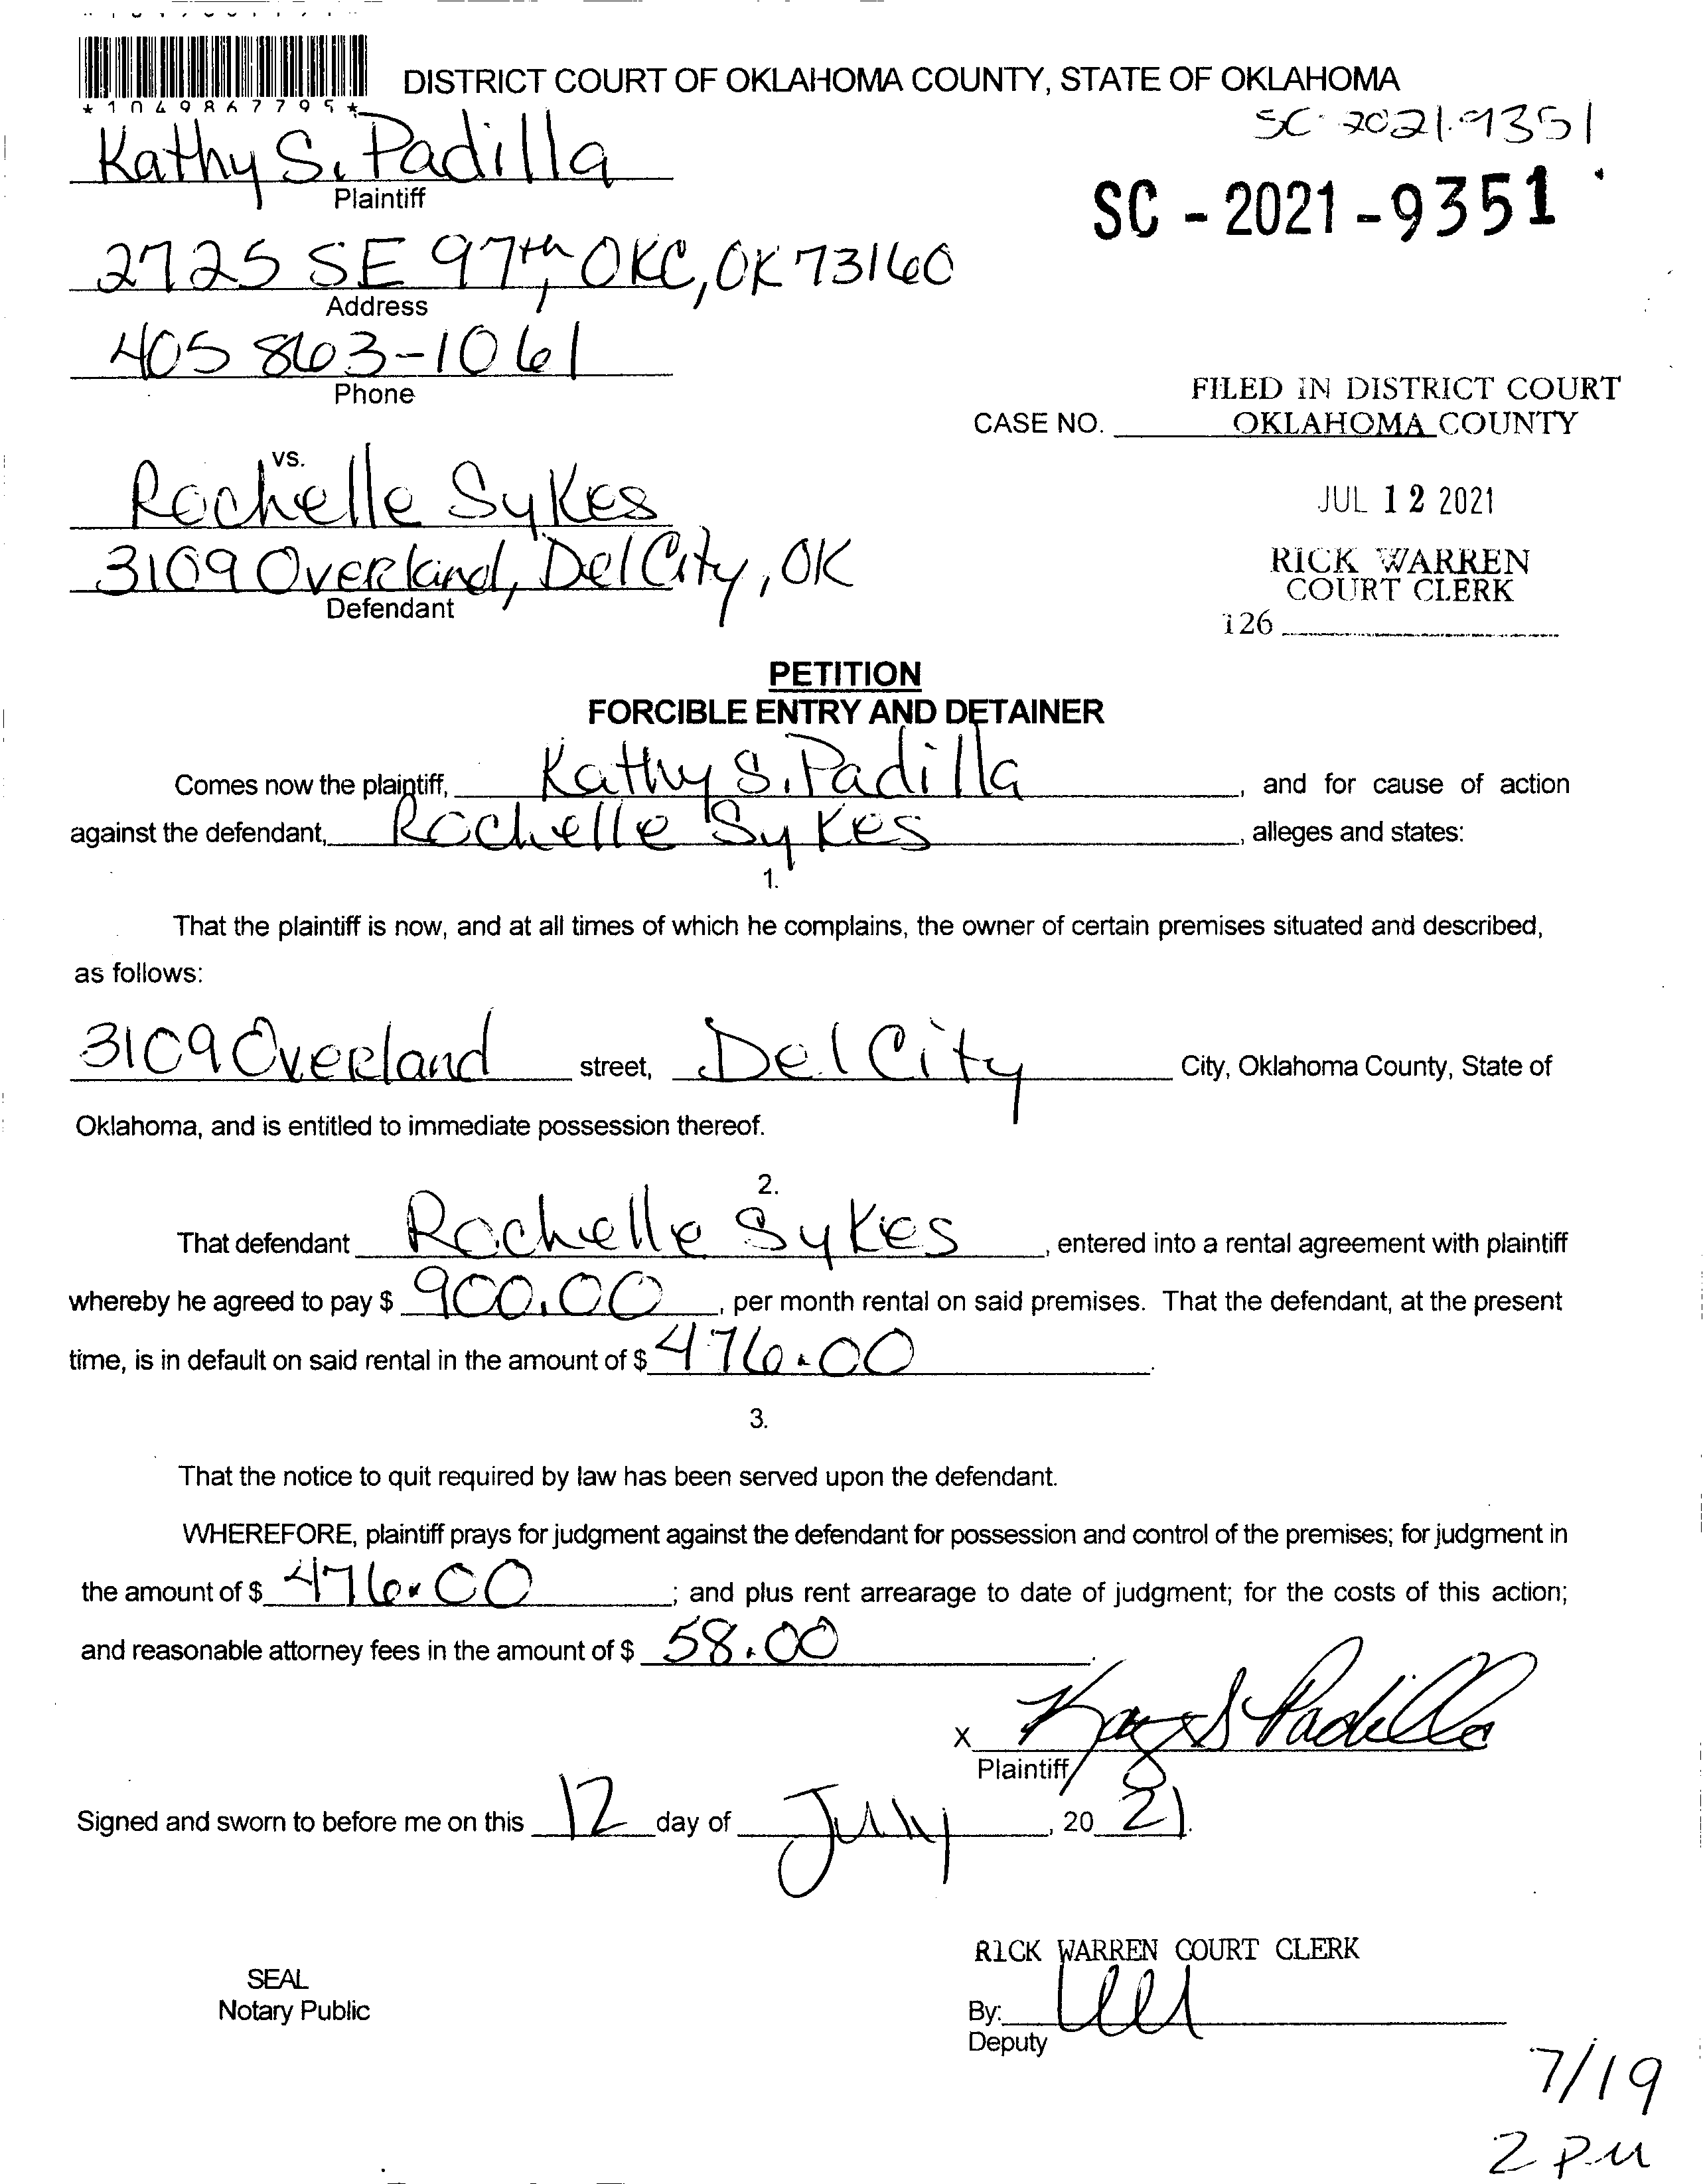 *1049867795*
DISTRICT COURT OF OKLAHOMA COUNTY, STATE OF OKLAHOMA
SC-2021-9351
Kathy S. Padilla
Plaintiff
SC - 2021 - 9351
2725 SE 97th, OKC, OK 73160
Address
405 863-1061
Phone
FILED IN DISTRICT COURT
CASE NO. OKLAHOMA COUNTY
vs.
Rochelle Sykes
JUL 12 2021
3109 Overland, Del City, OK
Defendant
RICK WARREN
COURT CLERK
126
PETITION
FORCIBLE ENTRY AND DETAINER
Comes now the plaintiff, Kathy S. Padilla, and for cause of action
against the defendant, Rochelle Sykes, alleges and states:
1.
That the plaintiff is now, and at all times of which he complains, the owner of certain premises situated and described,
as follows:
3109 Overland street, Del City City, Oklahoma County, State of
Oklahoma, and is entitled to immediate possession thereof.
2.
That defendant Rochelle Sykes, entered into a rental agreement with plaintiff
whereby he agreed to pay $ 900.00, per month rental on said premises. That the defendant, at the present
time, is in default on said rental in the amount of $ 476.00.
3.
That the notice to quit required by law has been served upon the defendant.
WHEREFORE, plaintiff prays for judgment against the defendant for possession and control of the premises; for judgment in
the amount of $ 476.00; and plus rent arrearage to date of judgment; for the costs of this action;
and reasonable attorney fees in the amount of $ 58.00.
X Kathy S Padilla
Plaintiff
Signed and sworn to before me on this 12 day of July, 20 21.
RICK WARREN COURT CLERK
SEAL
Notary Public
By:
Deputy
7/19
2 PM